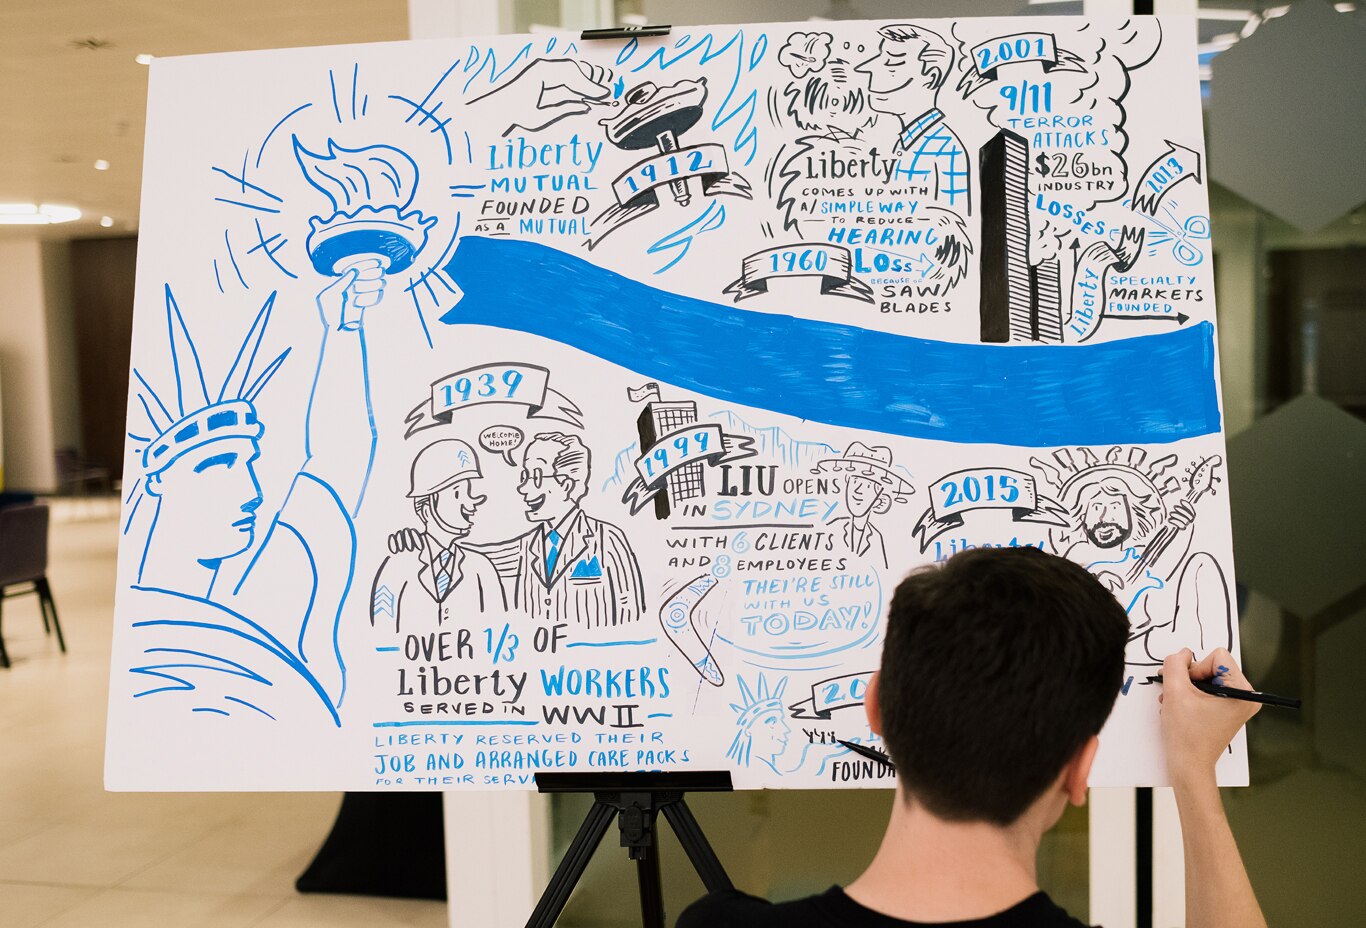 Liberty
MUTUAL
FOUNDED
AS A MUTUAL
1912
Liberty
COMES UP WITH
A SIMPLE WAY
TO REDUCE
HEARING
LOSS
BECAUSE OF
SAW
BLADES
1960
2001
9/11
TERROR
ATTACKS
$26bn
INDUSTRY
LOSSES
2013
Liberty
SPECIALTY
MARKETS
FOUNDED
1939
WELCOME
HOME!
OVER 1/3 OF
Liberty WORKERS
SERVED IN WWII
LIBERTY RESERVED THEIR
JOB AND ARRANGED CARE PACKS
FOR THEIR
1999
LIU OPENS
IN SYDNEY
WITH 6 CLIENTS
AND 8 EMPLOYEES
THEI'RE STILL
WITH US
TODAY!
2015
Liberty
20
FOUNDA